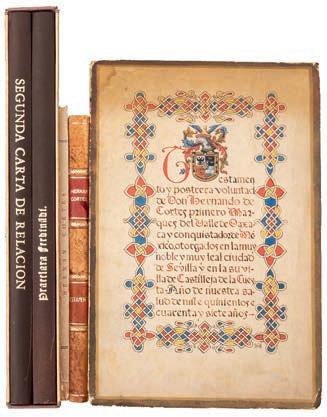 SEGUNDA CARTA DE RELACION
Praeclara Ferdinãdi.
HERNAN CORTES
HERNAN
CORTES
Testamen
to y postrera voluntad
de Don Hernando de
Cortes primero Mar
ques del Valle de Oaxa
ca y conquistador de Me
xico, otorgados en la muy
noble y muy leal ciudad
de Sevilla y en la vi
lla de Castilleja de la Cues
ta Año de nuestra sa
lud de mil e quinientos e
cuarenta y siete años